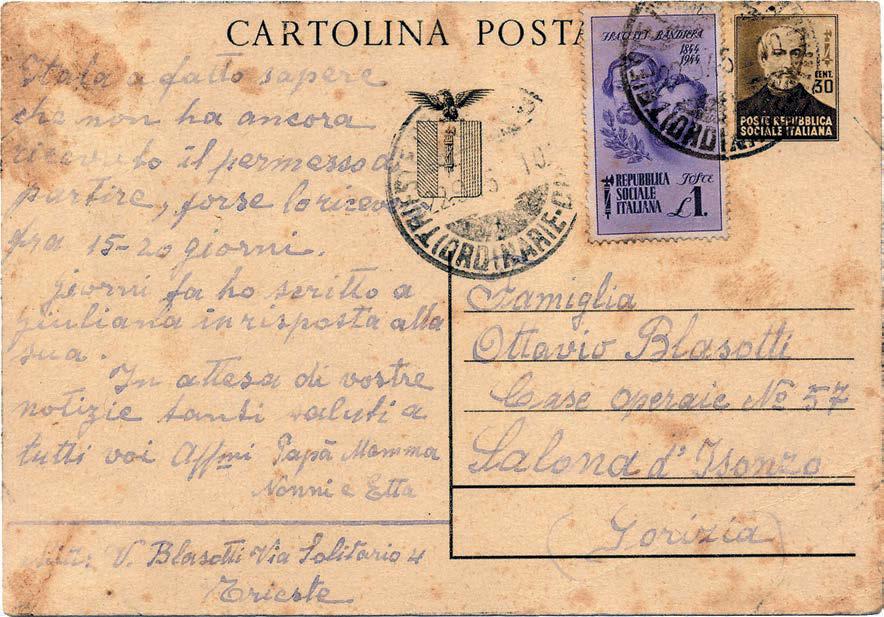 CARTOLINA POSTA
FRATELLI BANDIERA
1844
1944
REPUBBLICA
SOCIALE
ITALIANA
£1.
CENT.
30
POSTE REPUBBLICA
SOCIALE ITALIANA
TRIESTE
(ORDINARIE-
Itala a fatto sapere
che non ha ancora
ricevuto il permesso di
partire, forse lo riceve
fra 15-20 giorni.
Giorni fa ho scritto a
Giuliana in risposta alla
sua.
In attesa di vostre
notizie tanti saluti a
tutti voi Affmi Papà Mamma
Nonni e Etta
mitt: V. Blasotti Via Solitario 4
Trieste
Famiglia
Ottavio Blasotti
Case operaie No 57
Salona d'Isonzo
(Gorizia)